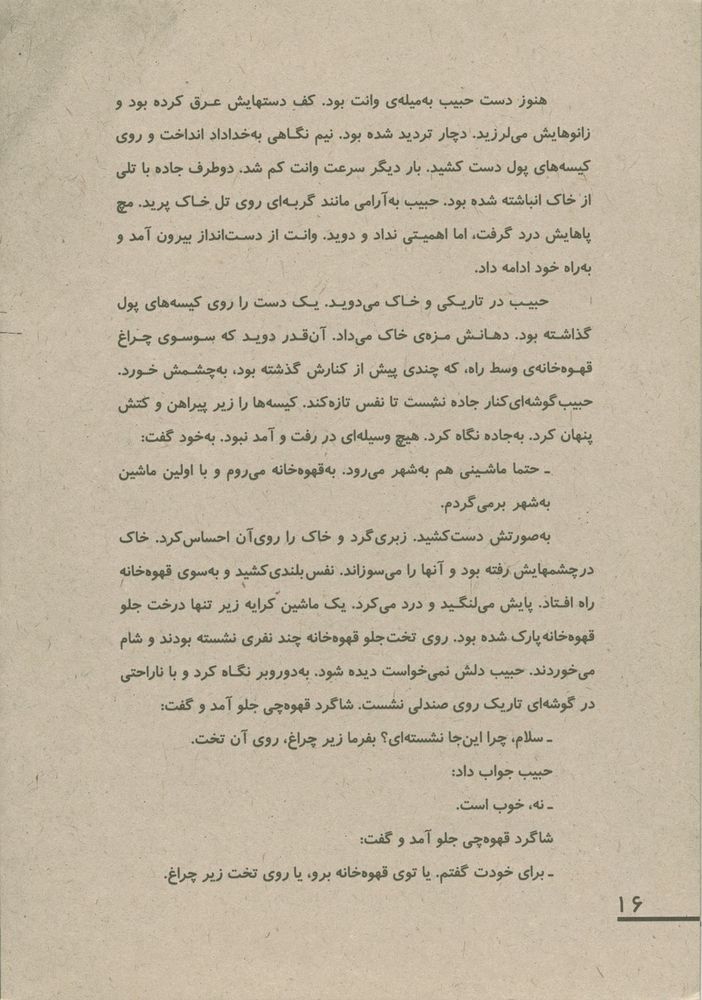 هنوز دست حبیب به‌میله‌ی وانت بود. کف دستهایش عرق کرده بود و
زانوهایش می‌لرزید. دچار تردید شده بود. نیم نگاهی به‌خداداد انداخت و روی
کیسه‌های پول دست کشید. بار دیگر سرعت وانت کم شد. دوطرف جاده با تلی
از خاک انباشته شده بود. حبیب به‌آرامی مانند گربه‌ای روی تل خاک پرید. مچ
پاهایش درد گرفت، اما اهمیتی نداد و دوید. وانت از دست‌انداز بیرون آمد و
به‌راه خود ادامه داد.
حبیب در تاریکی و خاک می‌دوید. یک دست را روی کیسه‌های پول
گذاشته بود. دهانش مزه‌ی خاک می‌داد. آن‌قدر دوید که سوسوی چراغ
قهوه‌خانه‌ی وسط راه، که چندی پیش از کنارش گذشته بود، به‌چشمش خورد.
حبیب گوشه‌ای کنار جاده نشست تا نفس تازه‌کند. کیسه‌ها را زیر پیراهن و کتش
پنهان کرد. به‌جاده نگاه کرد. هیچ وسیله‌ای در رفت و آمد نبود. به‌خود گفت:
ـ حتما ماشینی هم به‌شهر می‌رود. به‌قهوه‌خانه می‌روم و با اولین ماشین
به‌شهر برمی‌گردم.
به‌صورتش دست‌کشید. زبری گرد و خاک را روی‌آن احساس‌کرد. خاک
درچشمهایش رفته بود و آنها را می‌سوزاند. نفس‌بلندی‌کشید و به‌سوی قهوه‌خانه
راه افتاد. پایش می‌لنگید و درد می‌کرد. یک ماشین کرایه زیر تنها درخت جلو
قهوه‌خانه پارک شده بود. روی تخت‌جلو قهوه‌خانه چند نفری نشسته بودند و شام
می‌خوردند. حبیب دلش نمی‌خواست دیده شود. به‌دوروبر نگاه کرد و با ناراحتی
در گوشه‌ای تاریک روی صندلی نشست. شاگرد قهوه‌چی جلو آمد و گفت:
ـ سلام، چرا این‌جا نشسته‌ای؟ بفرما زیر چراغ، روی آن تخت.
حبیب جواب داد:
ـ نه، خوب است.
شاگرد قهوه‌چی جلو آمد و گفت:
ـ برای خودت گفتم. یا توی قهوه‌خانه برو، یا روی تخت زیر چراغ.
۱۶